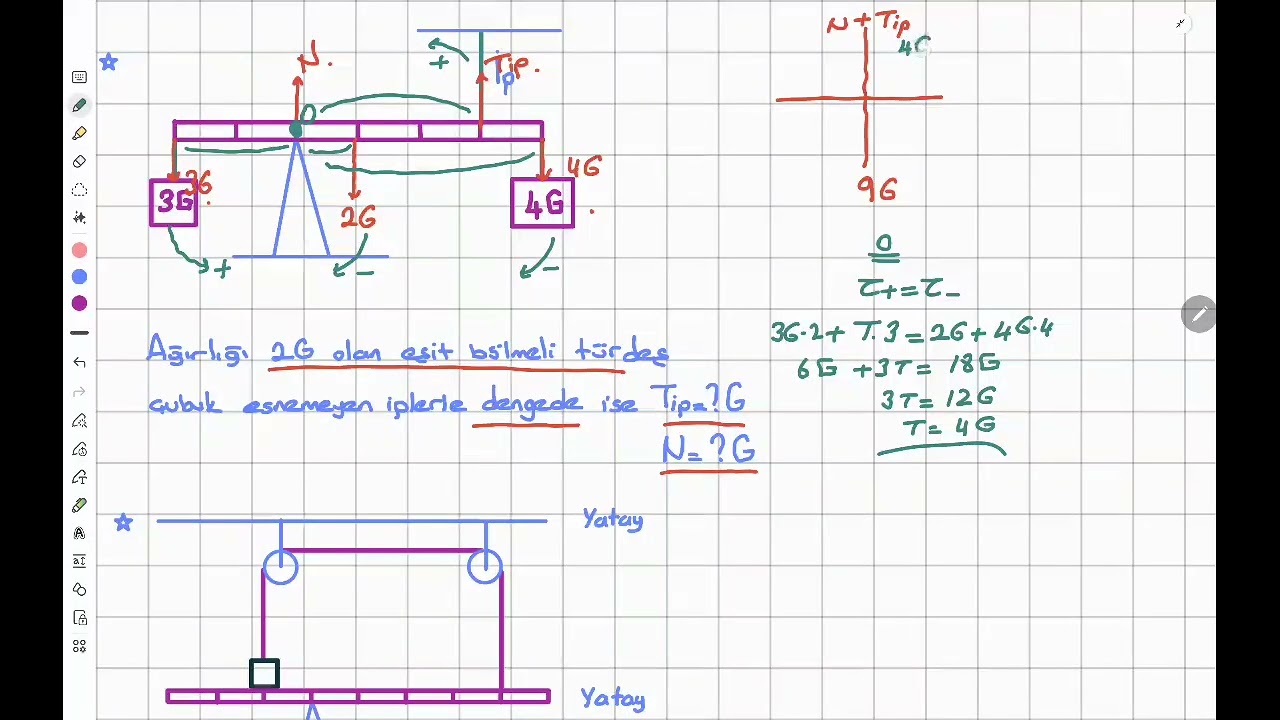 N + Tip
4G
N.
+
Tip.
ip
O
3G
3G
4G
4G
2G
9G
+
-
-
O
τ+ = τ-
3G.2 + T.3 = 2G + 4G.4
6G + 3T = 18G
3T = 12G
T = 4G
Ağırlığı 2G olan eşit bölmeli türdeş
çubuk esnemeyen iplerle dengede ise Tip=?G
N=?G
Yatay
Yatay